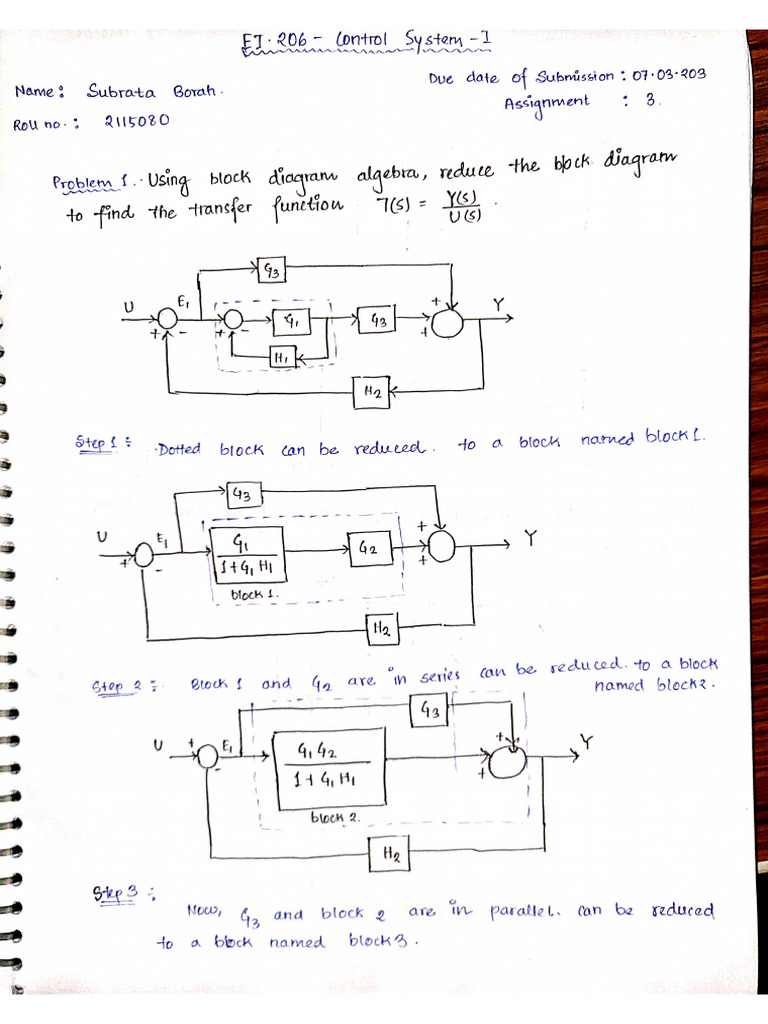 EI.206 - Control System - I
Name: Subrata Borah.
Due date of Submission: 07.03.203
Roll no.: 2115080
Assignment : 3.
Problem 1. Using block diagram algebra, reduce the block diagram
to find the transfer function T(s) = Y(s)/U(s).
G3
U E1 + - + - G1 G3 + + Y
H1
H2
Step 1: Dotted block can be reduced. to a block named block1.
G3
U + - E1 G1/(1+G1H1) G2 + + Y
block 1.
H2
Step 2: Block 1 and G2 are in series can be reduced. to a block
named block2.
G3
U + - E1 G1G2/(1+G1H1) + + Y
block 2.
H2
Step 3:
Now, G3 and block 2 are in parallel. can be reduced
to a block named block3.